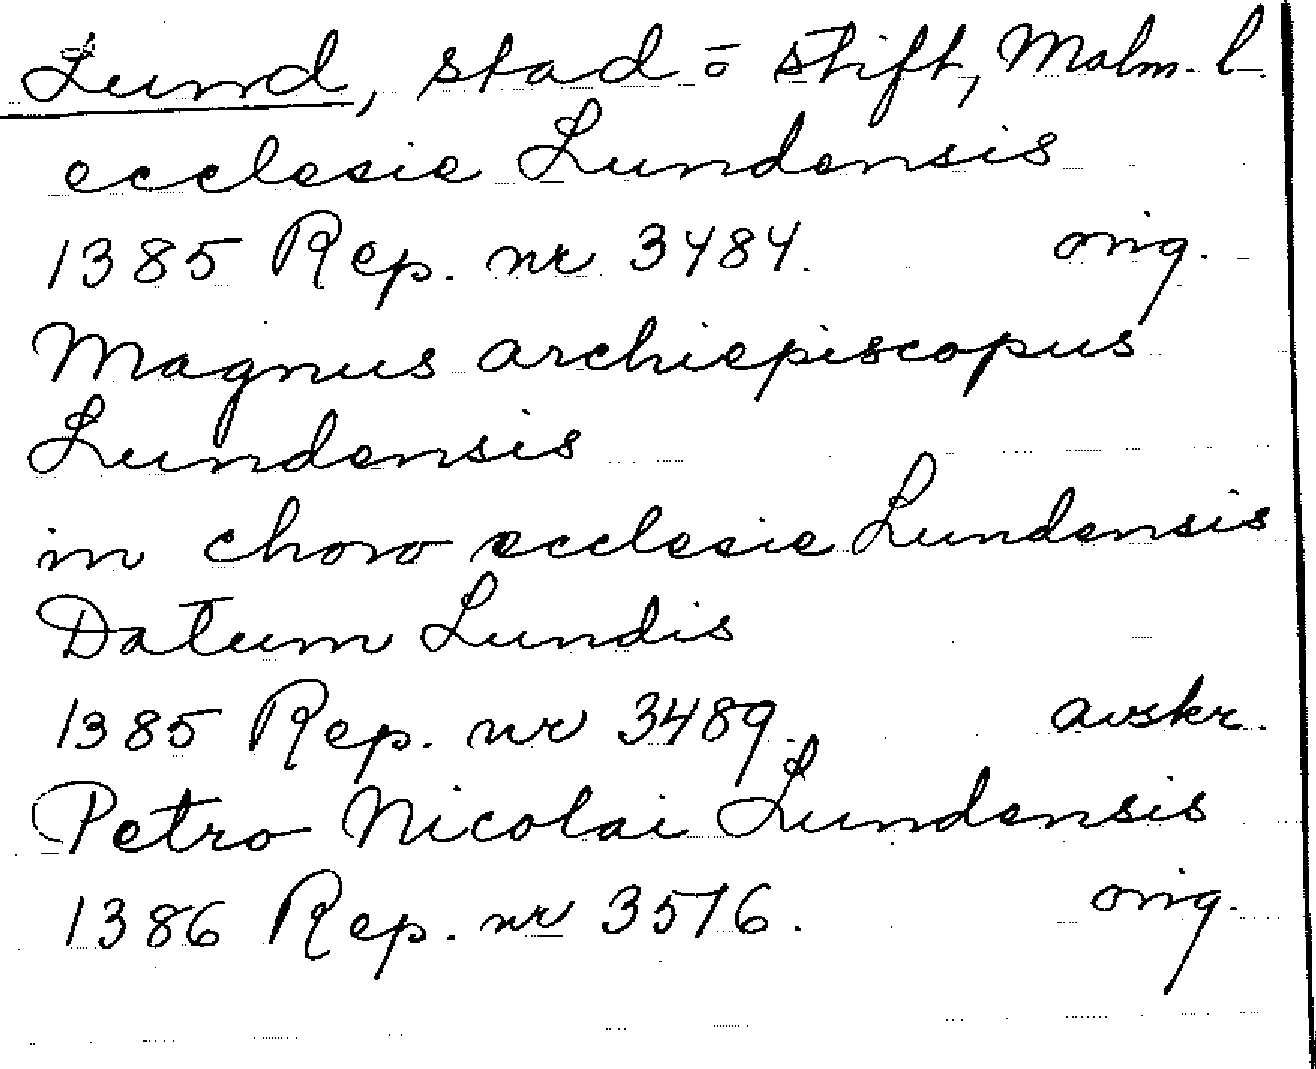 Lund, stad o stift, Malm. l.
ecclesie Lundensis
1385 Rep. nr 3484. orig.
Magnus archiepiscopus
Lundensis
in choro ecclesie Lundensis
Datum Lundis
1385 Rep. nr 3489. avskr.
Petro Nicolai Lundensis
1386 Rep. nr 3576. orig.